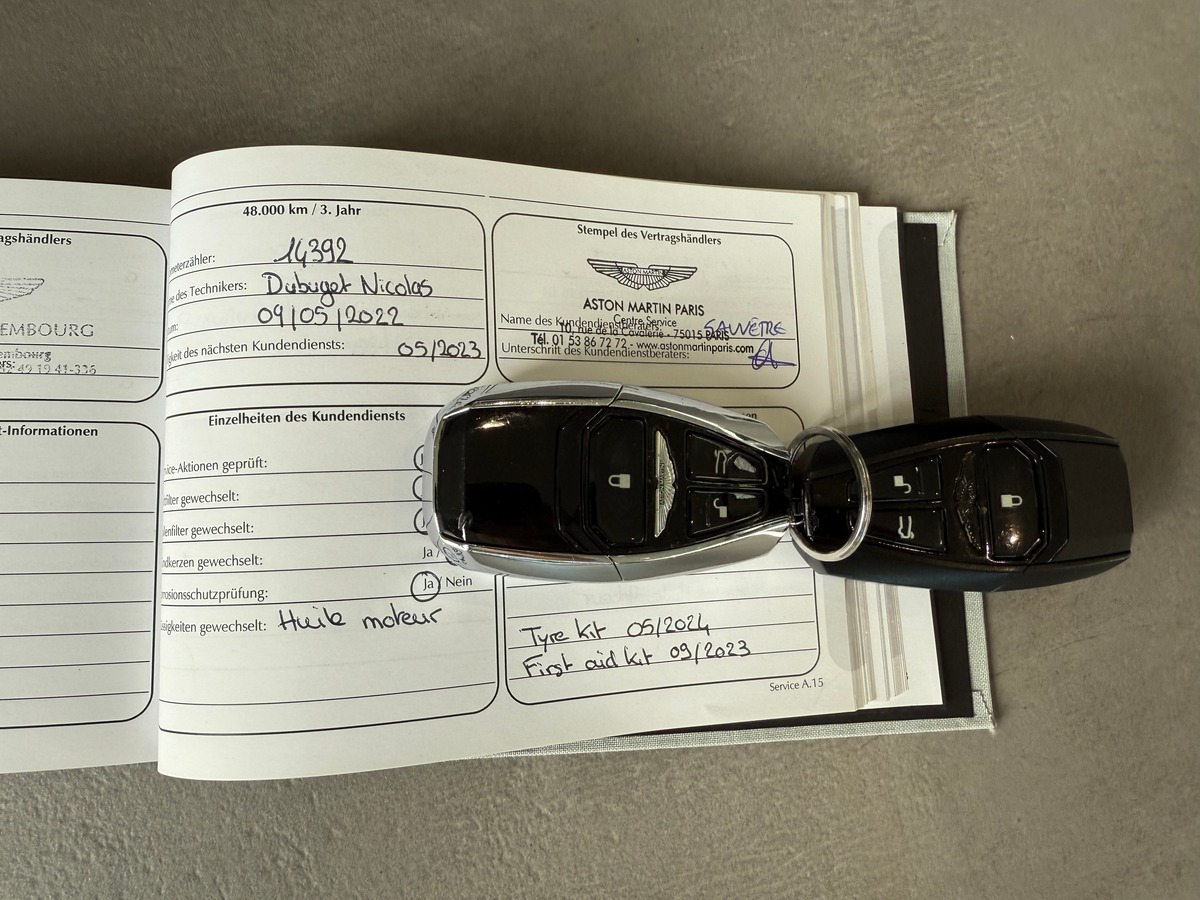 agshändlers
EMBOURG
t-Informationen
48.000 km / 3. Jahr
meterzähler: 14392
ne des Technikers: Dubuget Nicolas
um: 09/05/2022
gkeit des nächsten Kundendiensts: 05/2023
Stempel des Vertragshändlers
ASTON MARTIN
ASTON MARTIN PARIS
Centre Service
Name des Kundendienstberaters: SAUVÊTRE
10, rue de la Cavalerie - 75015 PARIS
Tél. 01 53 86 72 72 - www.astonmartinparis.com
Unterschrift des Kundendienstberaters:
Einzelheiten des Kundendiensts
vice-Aktionen geprüft:
filter gewechselt:
lenfilter gewechselt:
ndkerzen gewechselt: Ja /
rosionsschutzprüfung: Ja / Nein
ssigkeiten gewechselt: Huile moteur
en
Tyre kit 05/2024
First aid kit 09/2023
Service A.15